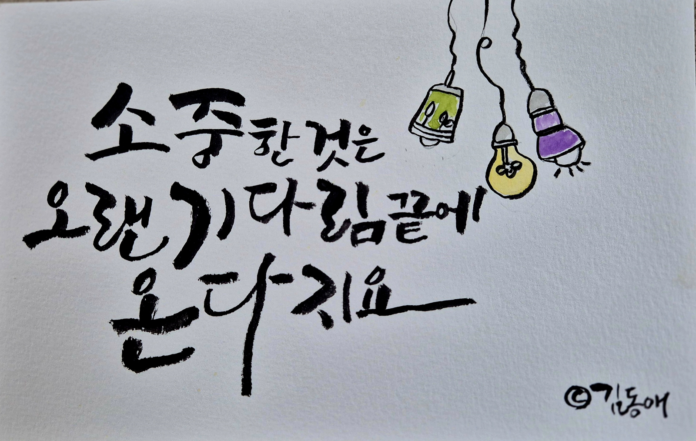 소중한것은
오랜 기다림끝에
온다지요
©김동애